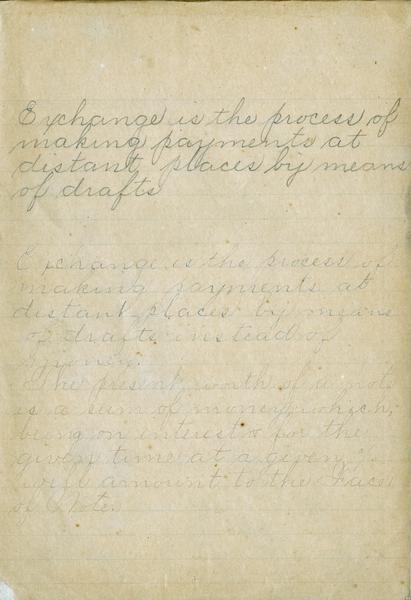 Exchange is the process of
making payments at
distant places by means
of drafts
Exchange is the process of
making payments at
distant places by means
of drafts instead of
money.
The present worth of a note
is a sum of money which,
being on interest for the
given time at a given
will amount to the Face
of Note.